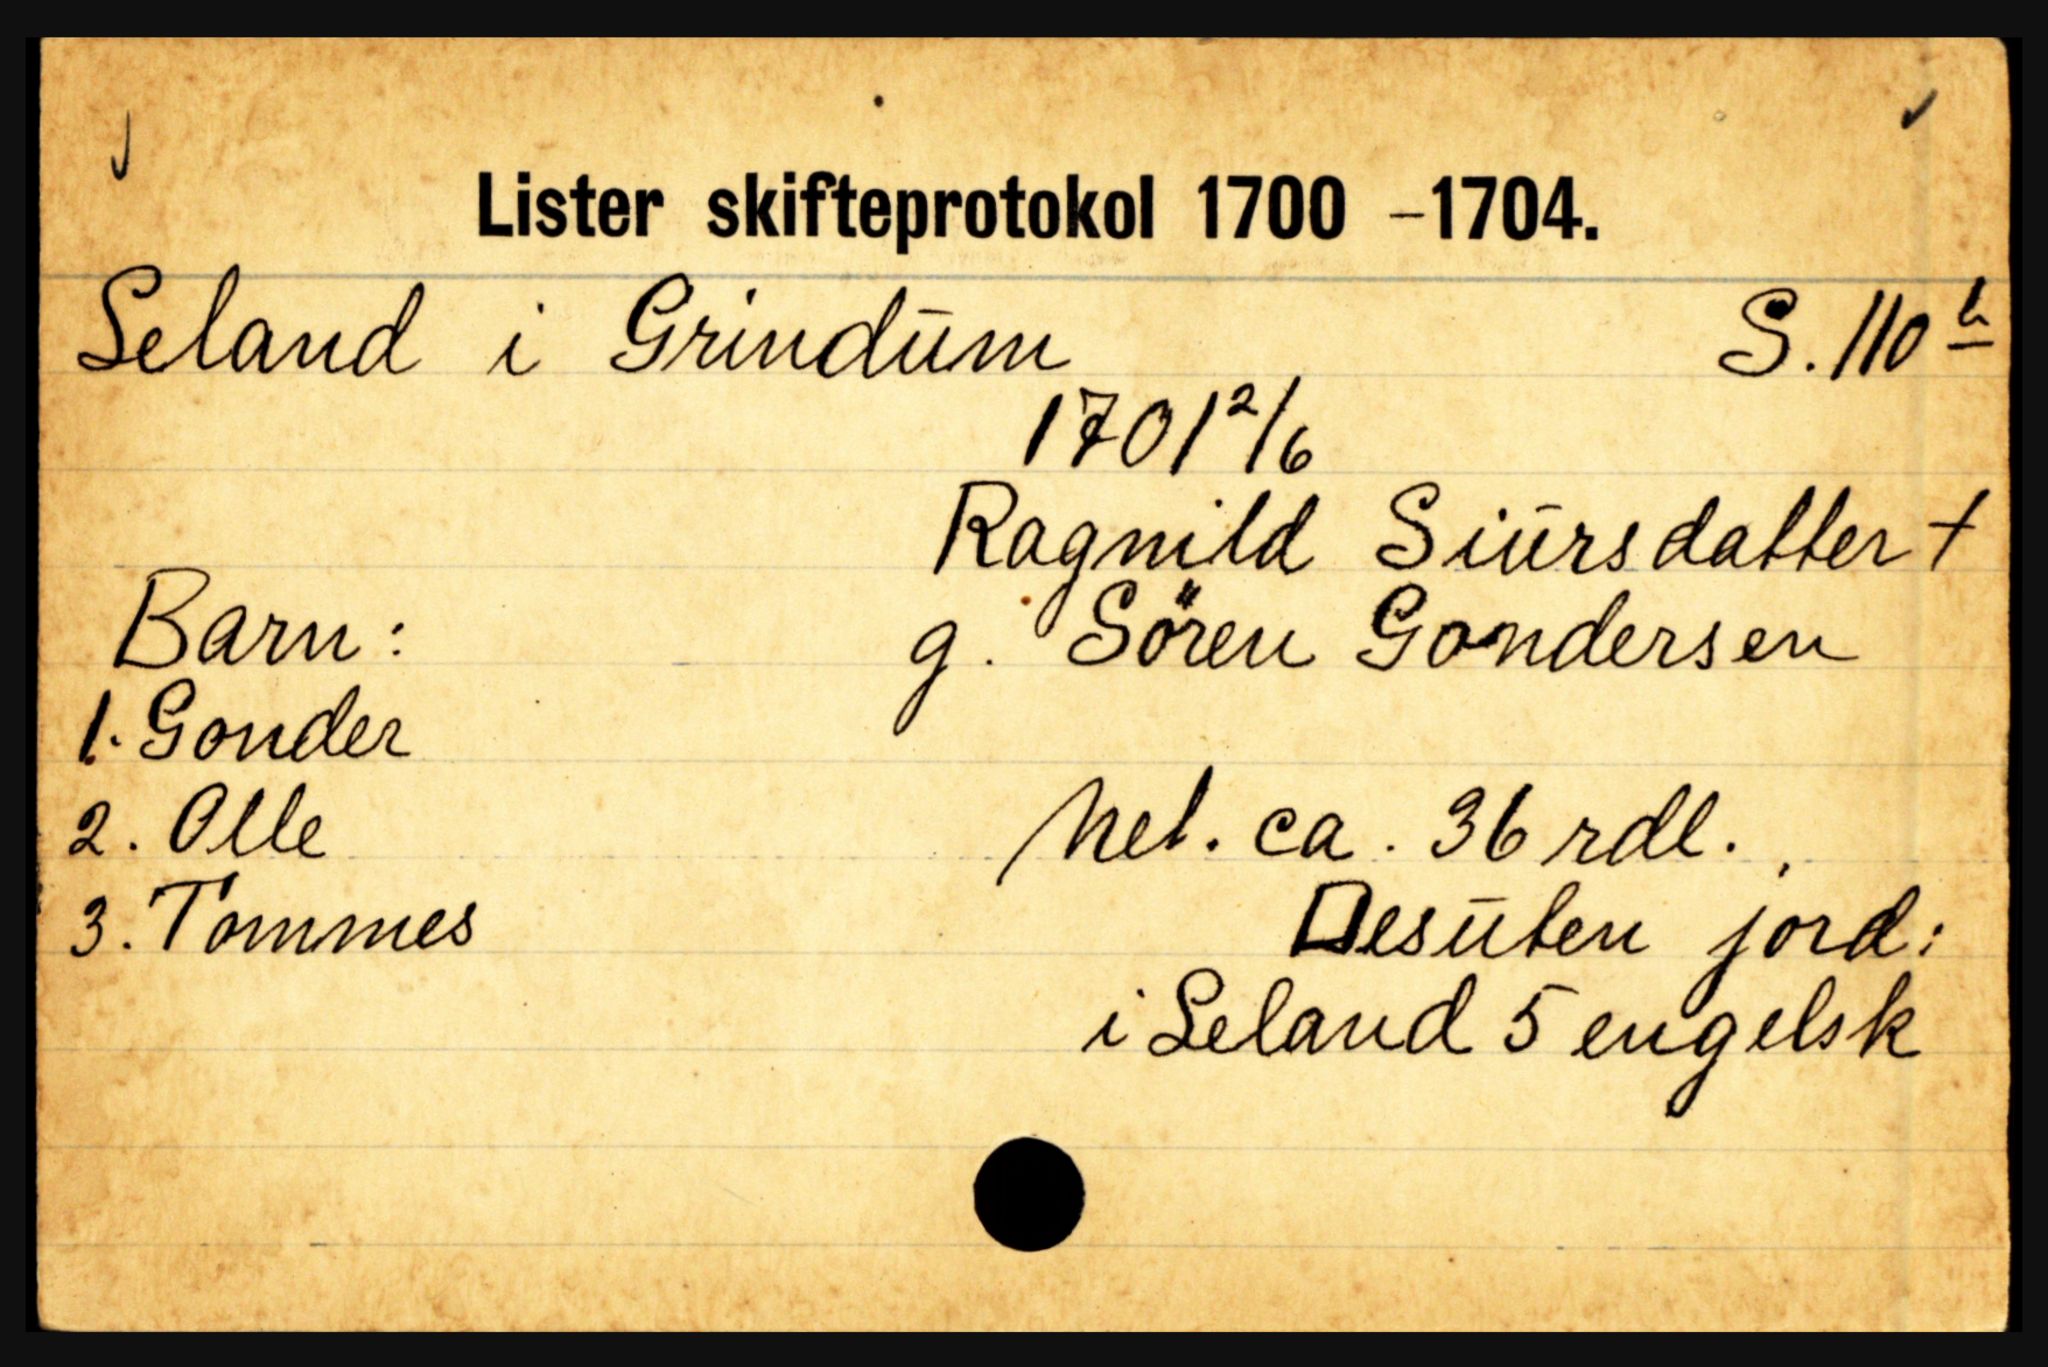 Lister skifteprotokol 1700 - 1704.
Seland i Grindum S. 110 b
1701 2/6
Ragnild Siursdatter +
Barn: g. Sören Gondersen
1. Gonder
2. Olle Net. ca. 36 rdl.
3. Tommes Desuten jord:
i Seland 5 engelsk